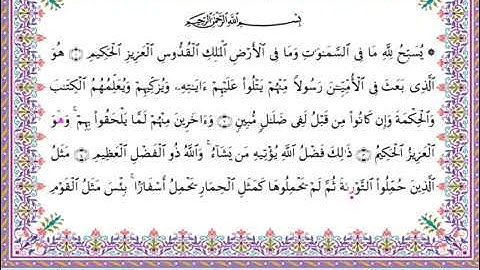 بِسْمِ اللَّهِ الرَّحْمَٰنِ الرَّحِيمِ
يُسَبِّحُ لِلَّهِ مَا فِي السَّمَٰوَٰتِ وَمَا فِي الْأَرْضِ الْمَلِكِ الْقُدُّوسِ الْعَزِيزِ الْحَكِيمِ هُوَ
الَّذِي بَعَثَ فِي الْأُمِّيِّينَ رَسُولًا مِنْهُمْ يَتْلُوا عَلَيْهِمْ ءَايَٰتِهِ وَيُزَكِّيهِمْ وَيُعَلِّمُهُمُ الْكِتَٰبَ
وَالْحِكْمَةَ وَإِن كَانُوا مِن قَبْلُ لَفِي ضَلَٰلٍ مُّبِينٍ وَءَاخَرِينَ مِنْهُمْ لَمَّا يَلْحَقُوا بِهِمْ وَهُوَ
الْعَزِيزُ الْحَكِيمُ ذَٰلِكَ فَضْلُ اللَّهِ يُؤْتِيهِ مَن يَشَاءُ وَاللَّهُ ذُو الْفَضْلِ الْعَظِيمِ مَثَلُ
الَّذِينَ حُمِّلُوا التَّوْرَىٰةَ ثُمَّ لَمْ يَحْمِلُوهَا كَمَثَلِ الْحِمَارِ يَحْمِلُ أَسْفَارًا بِئْسَ مَثَلُ الْقَوْمِ